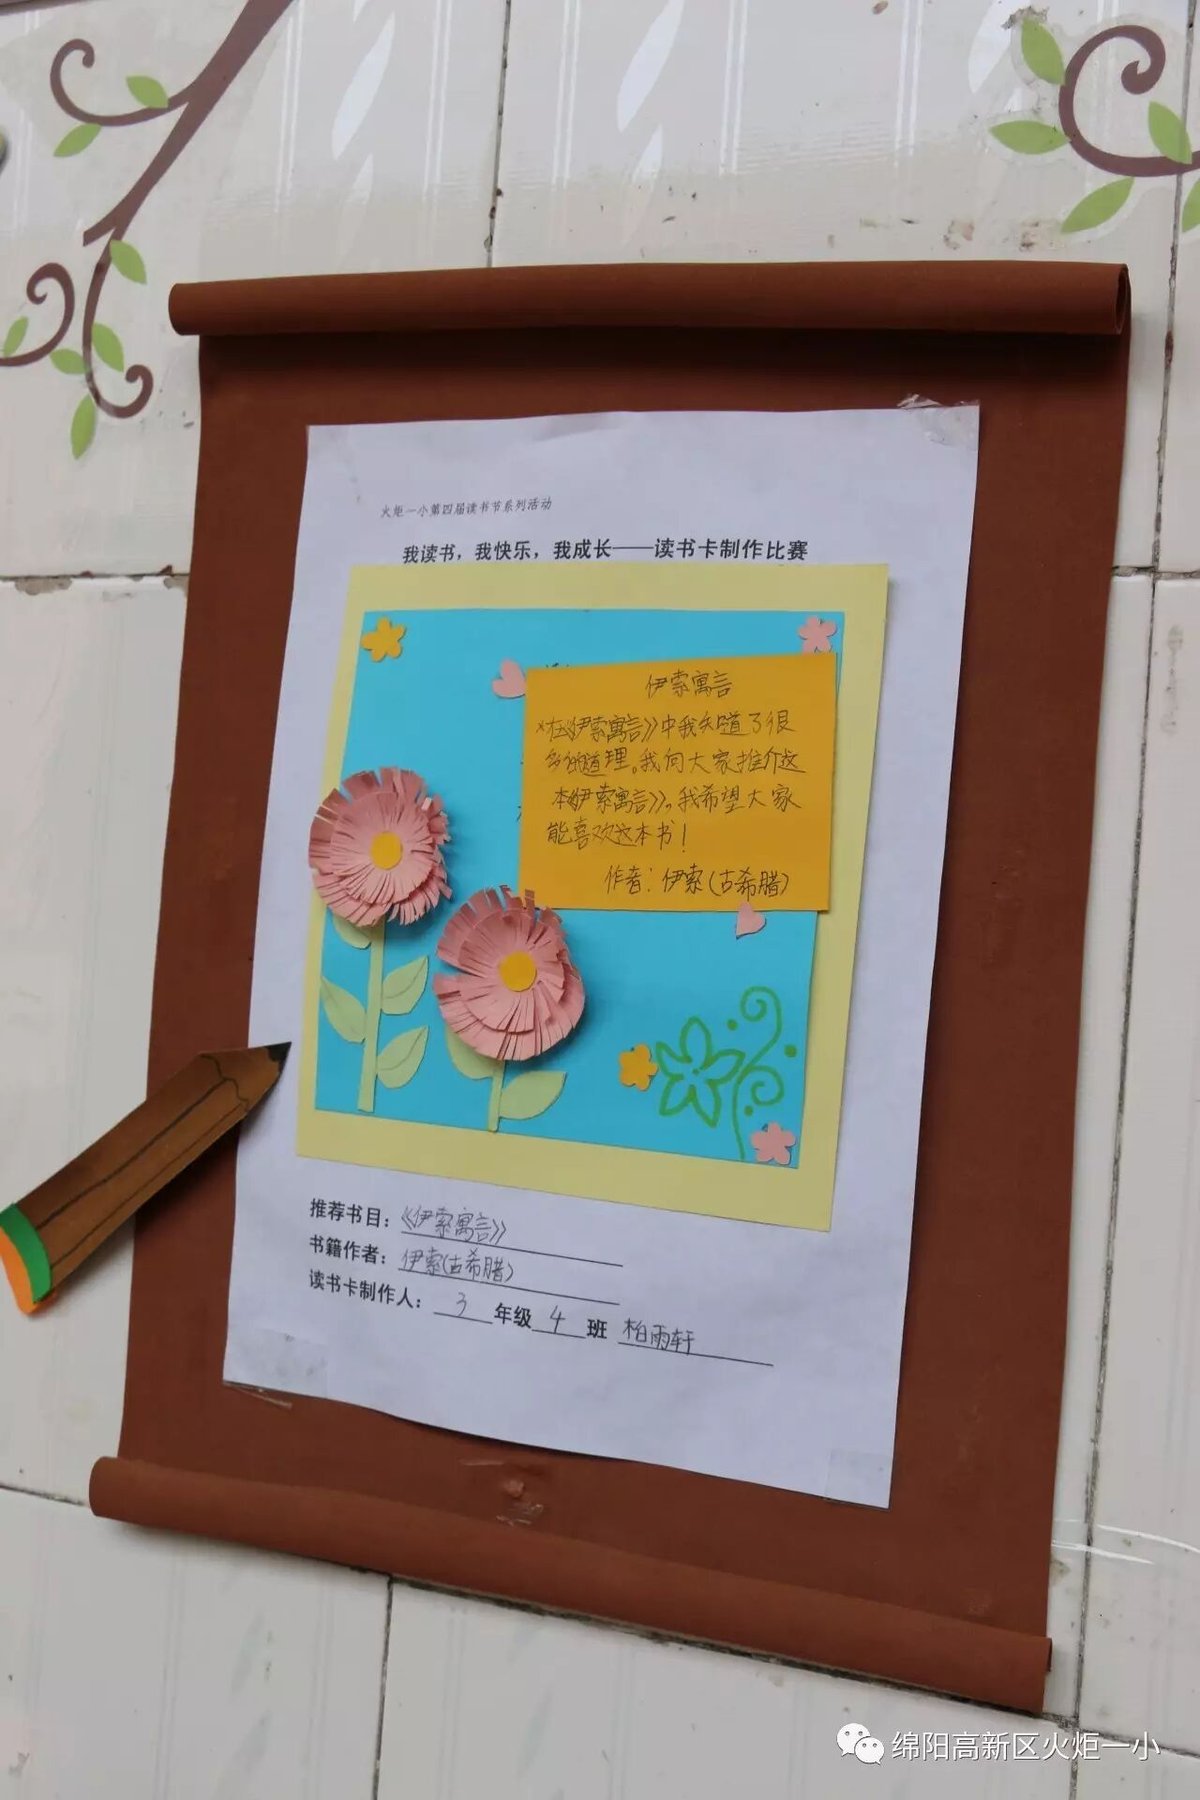 火炬一小第四届读书节系列活动
我读书，我快乐，我成长——读书卡制作比赛
伊索寓言
*在《伊索寓言》中我知道了很
多的道理。我向大家推介这
本《伊索寓言》。我希望大家
能喜欢这本书！
作者：伊索（古希腊）
推荐书目：《伊索寓言》
书籍作者：伊索（古希腊）
读书卡制作人：3年级4班 柏雨轩
绵阳高新区火炬一小